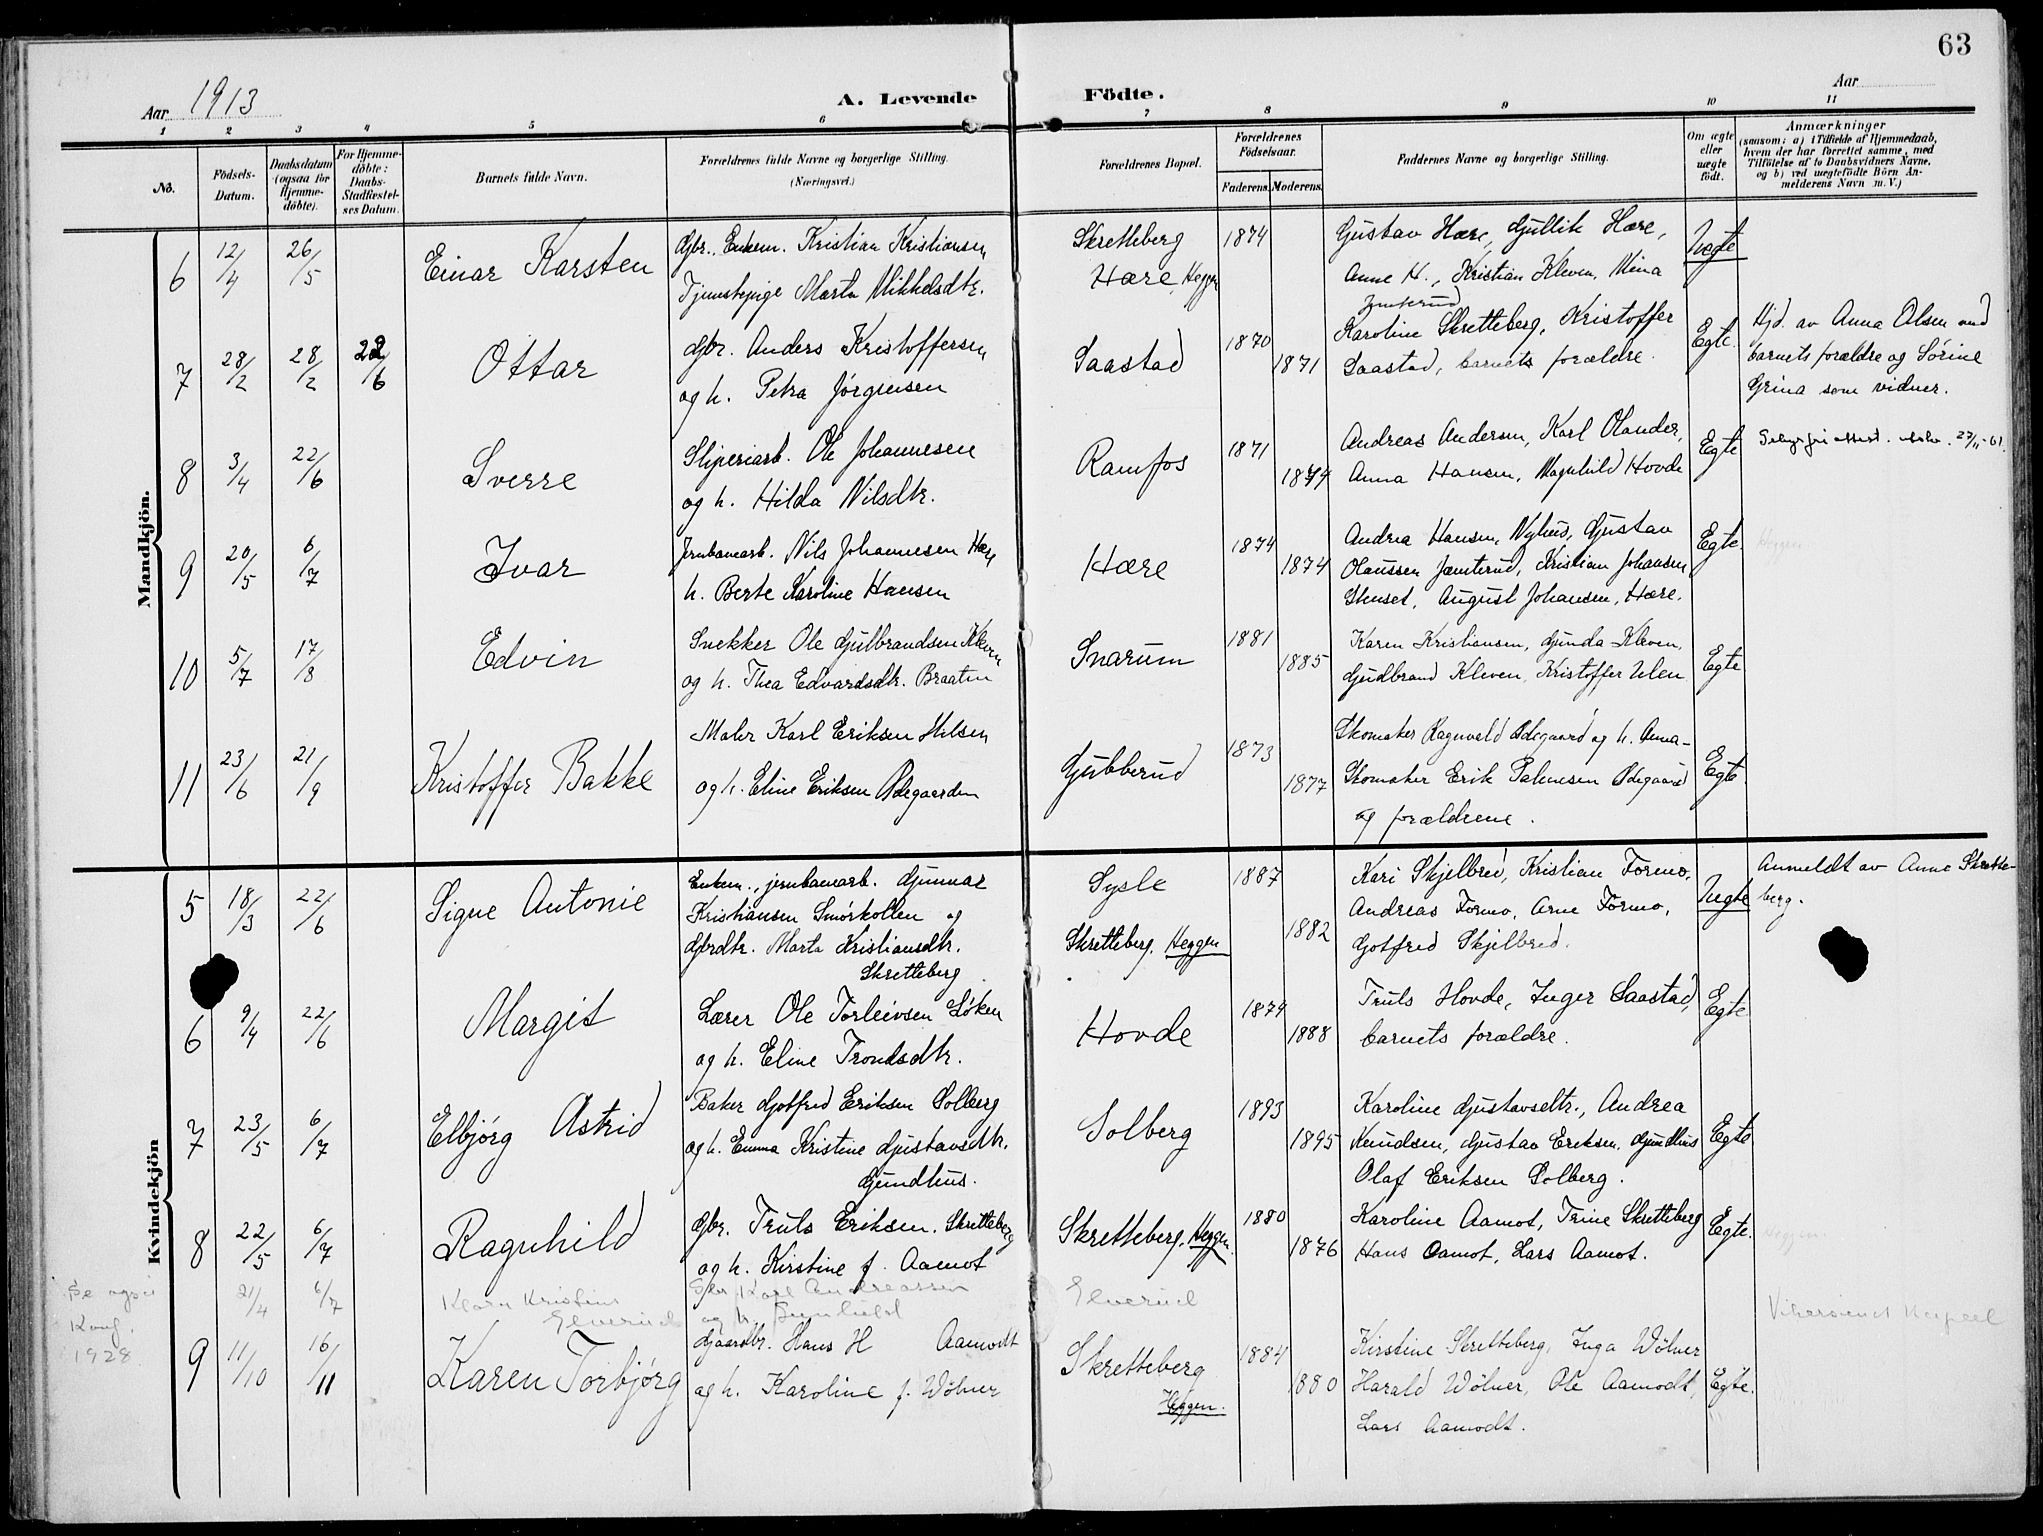 63
Aar 1913
A. Levende Födte.
Aar
1 2 3 4 5 6 7 8 9 10 11
No.
Födsels-Datum.
Daabsdatum (ogsaa for Hjemme-döbte).
For Hjemme-döbte: Daabs-Stadfæstel-ses Datum.
Barnets fulde Navn.
Forældrenes fulde Navne og borgerlige Stilling.
(Næringsvei.)
Forældrenes Bopæl.
Forældrenes Födselsaar.
Faderens. Moderens.
Faddernes Navne og borgerlige Stilling.
Om ægte eller uægte födt.
Anmærkninger
(saasom: a) i Tilfælde af Hjemmedaab,
hvem der har forrettet samme, med
Tilföielse af to Daabsvidners Navne,
og b) ved uægtefödte Börn An-
melderens Navn m. V.)
Mandkjön.
6 12/4 26/5 Einar Karsten
Gbr., Enkem. Kristian Kristiansen
Tjenestepige Marta Mikkelsdtr.
Skretteberg
Hære, Heggen
1874
Gustav Hære, Gullik Hære,
Anne H., Kristian Kleven, Mina
Uegte
7 28/2 28/2 22/6 Ottar
Gbr. Anders Kristoffersen
og h. Petra Jørgensen
Saastad
1870 1871
Karoline Skretteberg, Kristoffer
Saastad, barnets forældre.
Egte.
Hjd. av Anna Olsen med
barnets forældre og Sörine
Grina som vidner.
8 3/4 22/6 Sverre
Sliperiarb. Ole Johannesen
og h. Hilda Nilsdtr.
Ramfos
1871 1874
Andreas Andersen, Karl Olander,
Anna Hansen, Magnhild Hovde
Egte
9 20/5 6/7 Ivar
Jernbanearb. Nils Johannesen Hære
h. Berte Karoline Hansen
Hære
1874 1874
Andrea Hansen, Nyhus, Gustav
Olaussen Jamterud, Kristian Johansen
Skuset, August Johansen, Hære.
Egte.
Heggen
10 5/7 17/8 Edvin
Snekker Ole Gulbrandsen Kleven
og h. Thea Edvardsdtr. Braaten
Snarum
1881 1885
Karen Kristiansen, Gunda Kleven,
Gudbrand Kleven, Kristoffer Ulen
Egte
11 23/6 21/9 Kristoffer Bakke
Maler Karl Eriksen Hilsen
og h. Eline Eriksen Ødegaarden
Gubberud
1873 1877
Skomaker Ragnvald Ødegaard og h. Anna-
Skomaker Erik Palmesen Ødegaard
og forældrene.
Egte.
Kvindekjön
5 18/3 22/6 Signe Antonie
Enkem., jernbanearb. Gunnar
Kristiansen Smörkollen og
Gbrdtr. Marta Kristiansdtr.
Skretteberg
Sysle
Skretteberg, Heggen
1887 1882
Kari Skjelbred, Kristian Formo,
Andreas Formo, Arne Formo,
Gotfred Skjelbred.
Uegte
Anmeldt av Anne Skrette-
berg.
6 9/4 22/6 Margit
Lærer Ole Torleivsen Løken
og h. Eline Trondsdtr.
Hovde
1874 1888
Truls Hovde, Inger Saastad,
barnets forældre.
Egte
7 23/5 6/7 Elbjørg Astrid
Baker Gotfred Eriksen Solberg
og h. Emma Kristine Gustavsdtr.
Gundhus.
Solberg
1893 1895
Karoline Gustavsdtr., Andrea
Knudsen, Gustav Eriksen Gundhus
Olaf Eriksen Solberg.
Egte
8 22/5 6/7 Ragnhild
Gbr. Truls Eriksen Skretteberg
og h. Kirstine f. Aamot
Skretteberg, Heggen.
1880 1876
Karoline Aamot, Trine Skretteberg
Hans Aamot, Lars Aamot.
Egte.
Heggen
Se også
Konf.
1928
21/4 6/7 Klara Kristine
Elverud
Karl Andreassen
og h. Gunhild
Elverud
Vikersund Kapel
9 11/10 16/11 Karen Torbjørg
Gaardbr. Hans H Aamodt
og h. Karoline f. Wölner
Skretteberg
Heggen.
1884 1880
Kirstine Skretteberg, Inga Wölner
Harald Wölner, Ole Aamodt,
Lars Aamodt.
Egte.